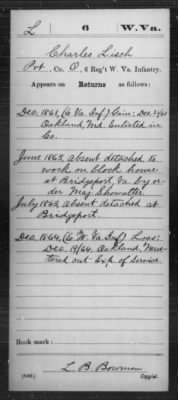 L 6 W. Va.
Charles Lisch
Pvt., Co. O, 6 Reg't W. Va. Infantry.
Appears on Returns as follows:
Dec. 1861, (6 Va. Inf) Gain: Dec.
Oakland, Md. Enlisted in
Co.
June 1863, absent detached to
work on block house
at Bridgeport Va. by or-
der Maj. Showalter.
July 1863, absent detached at
Bridgeport.
Dec. 1864, (6 W. Va Inf) Loss:
Dec. 19/64. Oakland. Mus-
tered out Exp. of Service.
Book mark:
L. B. Bowman
(546) Copyist.